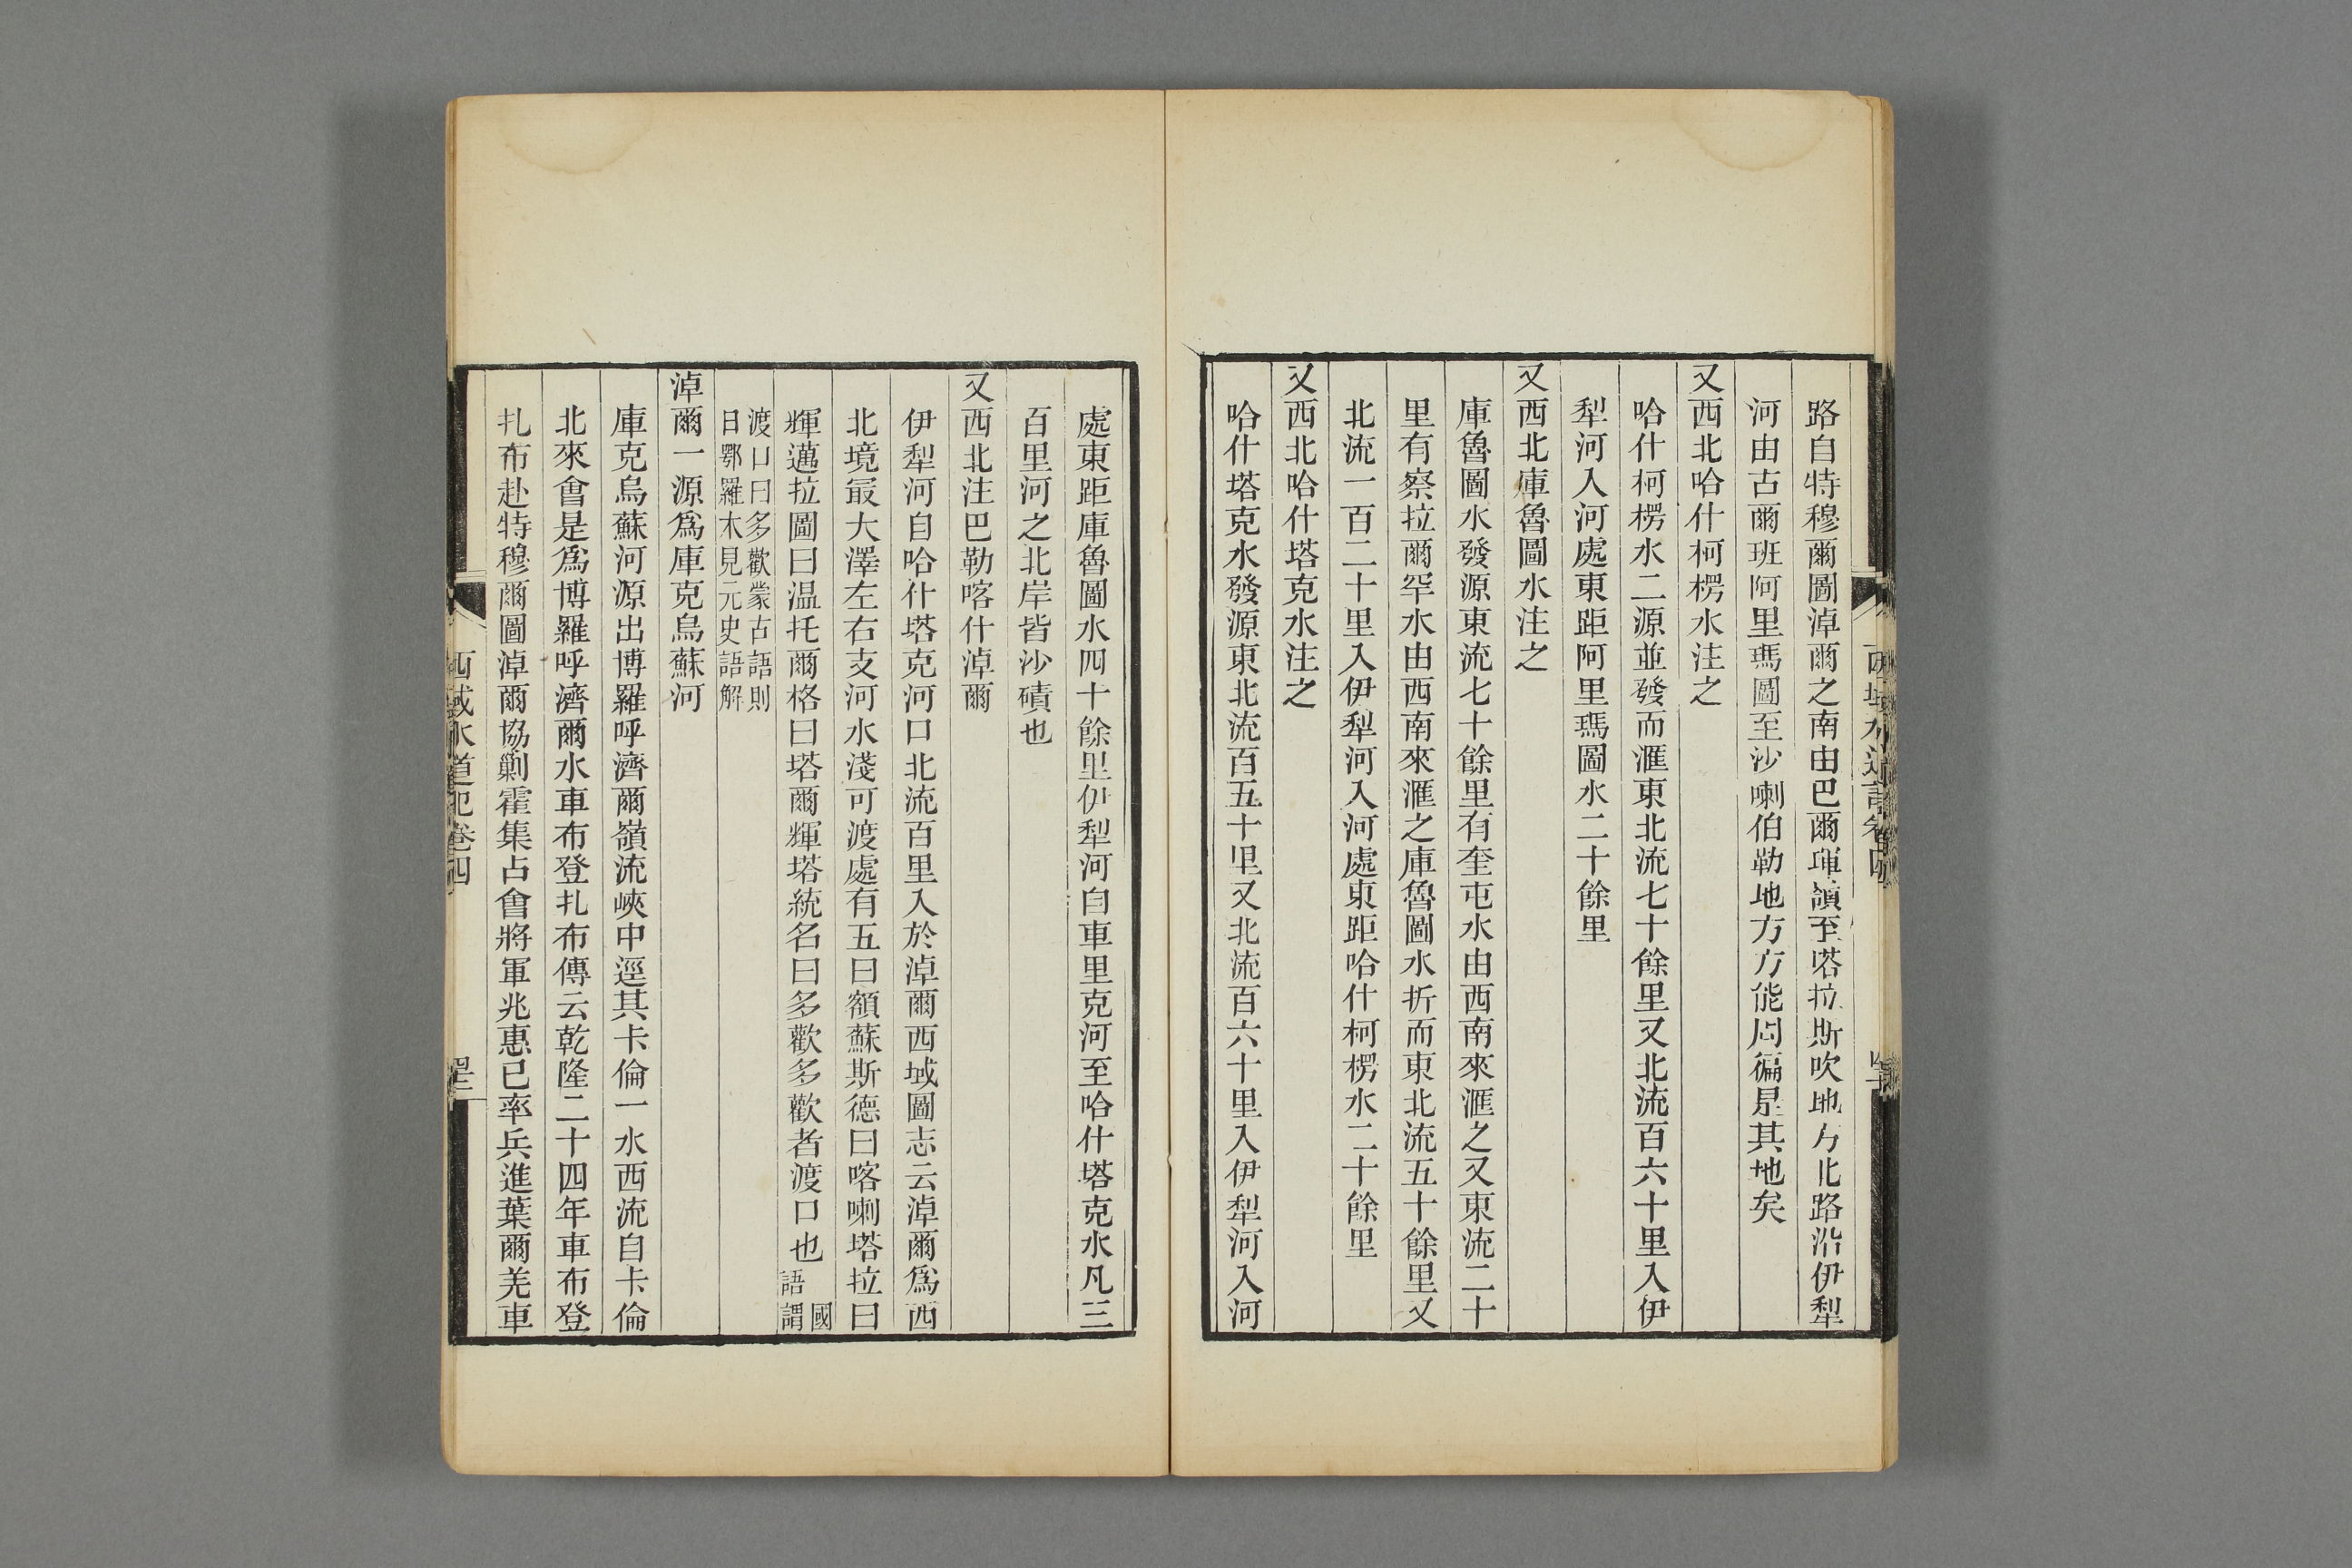 路自特穆爾圖淖爾之南由巴爾琿嶺至塔拉斯吹地方北路沿伊犁
河由古爾班阿里瑪圖至沙喇伯勒地方方能周徧是其地矣
又西北哈什柯楞水注之
哈什柯楞水二源並發而滙東北流七十餘里又北流百六十里入伊
犁河入河處東距阿里瑪圖水二十餘里
又西北庫魯圖水注之
庫魯圖水發源東流七十餘里有奎屯水由西南來滙之又東流二十
里有察拉爾罕水由西南來滙之庫魯圖水折而東北流五十餘里又
北流一百二十里入伊犁河入河處東距哈什柯楞水二十餘里
又西北哈什塔克水注之
哈什塔克水發源東北流百五十里又北流百六十里入伊犁河入河
處東距庫魯圖水四十餘里伊犁河自車里克河至哈什塔克水凡三
百里河之北岸皆沙磧也
又西北注巴勒喀什淖爾
伊犁河自哈什塔克河口北流百里入於淖爾西域圖志云淖爾爲西
北境最大澤左右支河水淺可渡處有五曰額蘇斯德曰喀喇塔拉曰
輝邁拉圖曰温托爾格曰塔爾輝塔統名曰多歡多歡者渡口也國語謂
渡口曰多歡蒙古語則
曰鄂羅木見元史語解
淖爾一源爲庫克烏蘇河
庫克烏蘇河源出博羅呼濟爾嶺流峽中逕其卡倫一水西流自卡倫
北來會是爲博羅呼濟爾水車布登扎布傳云乾隆二十四年車布登
扎布赴特穆爾圖淖爾協剿霍集占會將軍兆惠已率兵進葉爾羌車
西域水道記卷四